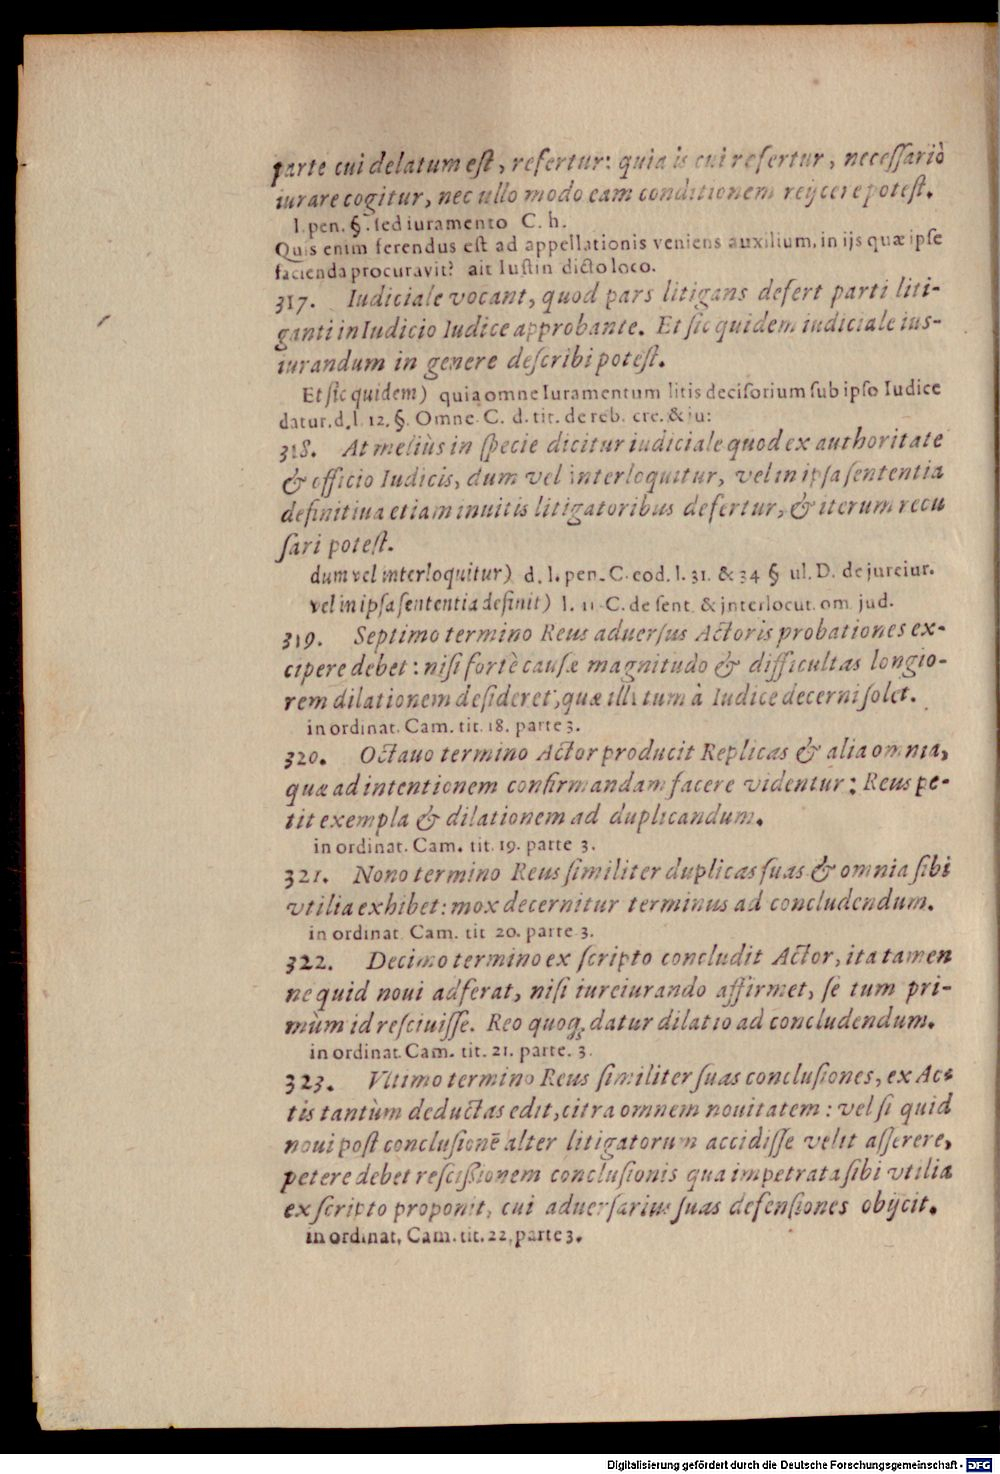 parte cui delatum est, refertur: quia is cui refertur, necessariò
iurare cogitur, nec ullo modo eam conditionem reijcere potest.
l. pen. §. sed iuramento C. h.
Quis enim ferendus est ad appellationis veniens auxilium, in ijs quæ ipse
facienda procuravit? ait Iustin dicto loco.
317. Iudiciale vocant, quod pars litigans defert parti liti-
ganti in Iudicio Iudice approbante. Et sic quidem iudiciale ius-
iurandum in genere describi potest.
Et sic quidem) quia omne Iuramentum litis decisorium sub ipso Iudice
datur. d. l. 12. §. Omne. C. d. tit. de reb. cre. & ju:
318. At meliùs in specie dicitur iudiciale quod ex authoritate
& officio Iudicis, dum vel interloquitur, vel in ipsa sententia
definitiua etiam inuitis litigatoribus defertur, & iterum recu
sari potest.
dum vel interloquitur) d. l. pen. C. eod. l. 31. & 34 § ul. D. de jureiur.
vel in ipsa sententia definit) l. 11 C. de sent. & jnterlocut. om. jud.
319. Septimo termino Reus aduersus Actoris probationes ex-
cipere debet: nisi fortè causæ magnitudo & difficultas longio-
rem dilationem desideret, quæ illi tum à Iudice decerni solet.
in ordinat. Cam. tit. 18. parte 3.
320. Octauo termino Actor producit Replicas & alia omnia,
quæ ad intentionem confirmandam facere videntur: Reus pe-
tit exempla & dilationem ad duplicandum.
in ordinat. Cam. tit. 19. parte 3.
321. Nono termino Reus similiter duplicas suas & omnia sibi
vtilia exhibet: mox decernitur terminus ad concludendum.
in ordinat. Cam. tit 20. parte 3.
322. Decimo termino ex scripto concludit Actor, ita tamen
ne quid noui adferat, nisi iureiurando affirmet, se tum pri-
mùm id resciuisse. Reo quoq; datur dilatio ad concludendum.
in ordinat. Cam. tit. 21. parte. 3.
323. Vltimo termino Reus similiter suas conclusiones, ex Ac-
tis tantùm deductas edit, citra omnem nouitatem: vel si quid
noui post conclusionẽ alter litigatorum accidisse velit asserere,
petere debet rescißionem conclusionis qua impetrata sibi vtilia
ex scripto proponit, cui aduersarius suas defensiones obijcit.
in ordinat. Cam. tit. 22, parte 3.
Digitalisierung gefördert durch die Deutsche Forschungsgemeinschaft - DFG